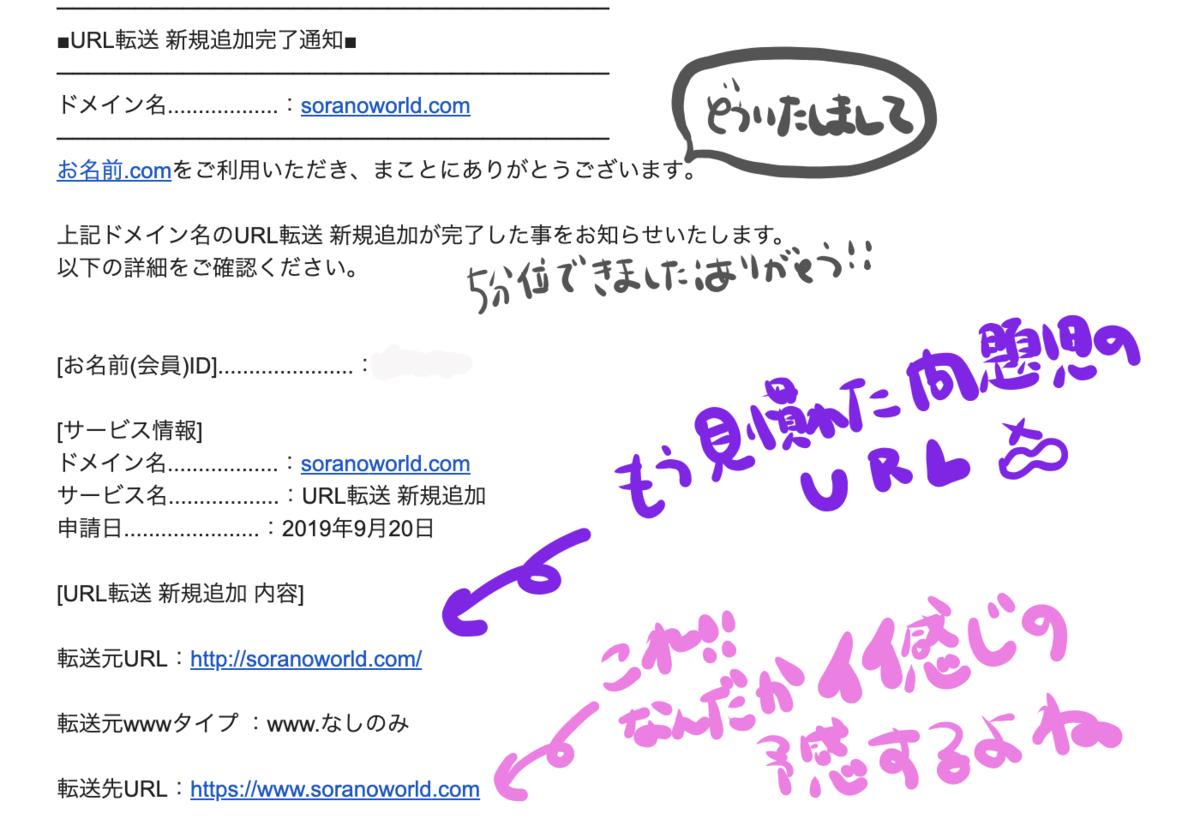 ■URL転送 新規追加完了通知■
ドメイン名..................：soranoworld.com
どういたしまして
お名前.comをご利用いただき、まことにありがとうございます。
上記ドメイン名のURL転送 新規追加が完了した事をお知らせいたします。
以下の詳細をご確認ください。
5分位できましたありがとう!!
[お名前(会員)ID]......................：
もう見慣れた問題児の
URL
[サービス情報]
ドメイン名..................：soranoworld.com
サービス名..................：URL転送 新規追加
申請日......................：2019年9月20日
[URL転送 新規追加 内容]
これ!!
なんだかイイ感じの
予感するよね
転送元URL：http://soranoworld.com/
転送元wwwタイプ ：www.なしのみ
転送先URL：https://www.soranoworld.com